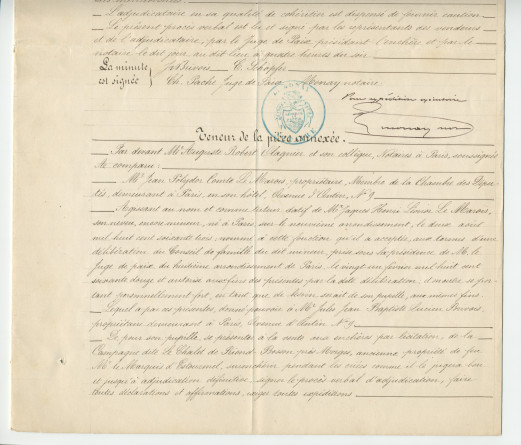 L'adjudicataire en sa qualité de cohéritier est dispensé de fournir caution.
Le présent procès verbal est lu et signé par les représentants des vendeurs
et de l'adjudicataire, par le Juge de Paix, présidant l'enchère et par le
notaire, le dit jour, au dit lieu à quatre heures du soir.
La minute
est signée
Ch. Pache Juge de Paix Monay notaire
Pour expédition conforme
Teneur de la pièce annexée.
Par devant Me Auguste Robert et son collègue, Notaires à Paris, soussignés
A comparu:
M. Jean Polydor Comte Le Marois, propriétaire, Membre de la Chambre des Dépu-
tés, demeurant à Paris, en son hôtel, Avenue d'Antin, No 9
Agissant au nom et comme tuteur datif de Mr Jaques Henri Le Marois,
son neveu, encore mineur, né à Paris sur le neuvième arrondissement, le deux août
mil huit cent soixante trois; nommé à cette fonction qu'il a acceptée, aux termes d'une
délibération du Conseil de famille du dit mineur, prise sous la présidence de M. le
Juge de paix du huitième arrondissement de Paris, le vingt un février mil huit cent
soixante douze et autorisé aux fins des présentes par la dite délibération, d'autre se por-
tant personnellement fort, en tant que de besoin serait de son pupille, aux mêmes fins.
Lequel a par ces présentes, donné pouvoir à Mr Jules Jean Baptiste Lucien Buvois,
propriétaire demeurant à Paris, Avenue d'Antin No 9.
De, pour son pupille, se présenter à la vente aux enchères par licitation, de la
Campagne dite Le Chalet de près Morges, ancienne propriété de feu
Mr le Marquis d'Estourmel, surenchérir pendant les criées comme il le jugera bon
et jusqu'à adjudication définitive, signer le procès verbal d'adjudication, faire
toutes déclarations et affirmations, exiger toutes expéditions